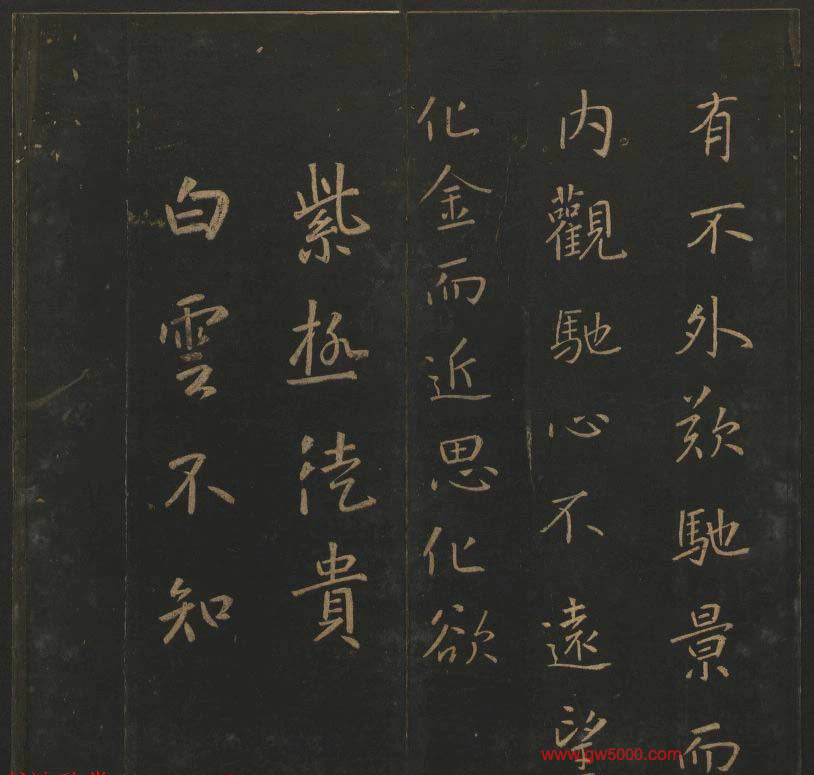 有不外欵馳景而
内觀馳心不遠望
化金而近思化欲
紫極徒貴
白雲不知
www.gw5000.com